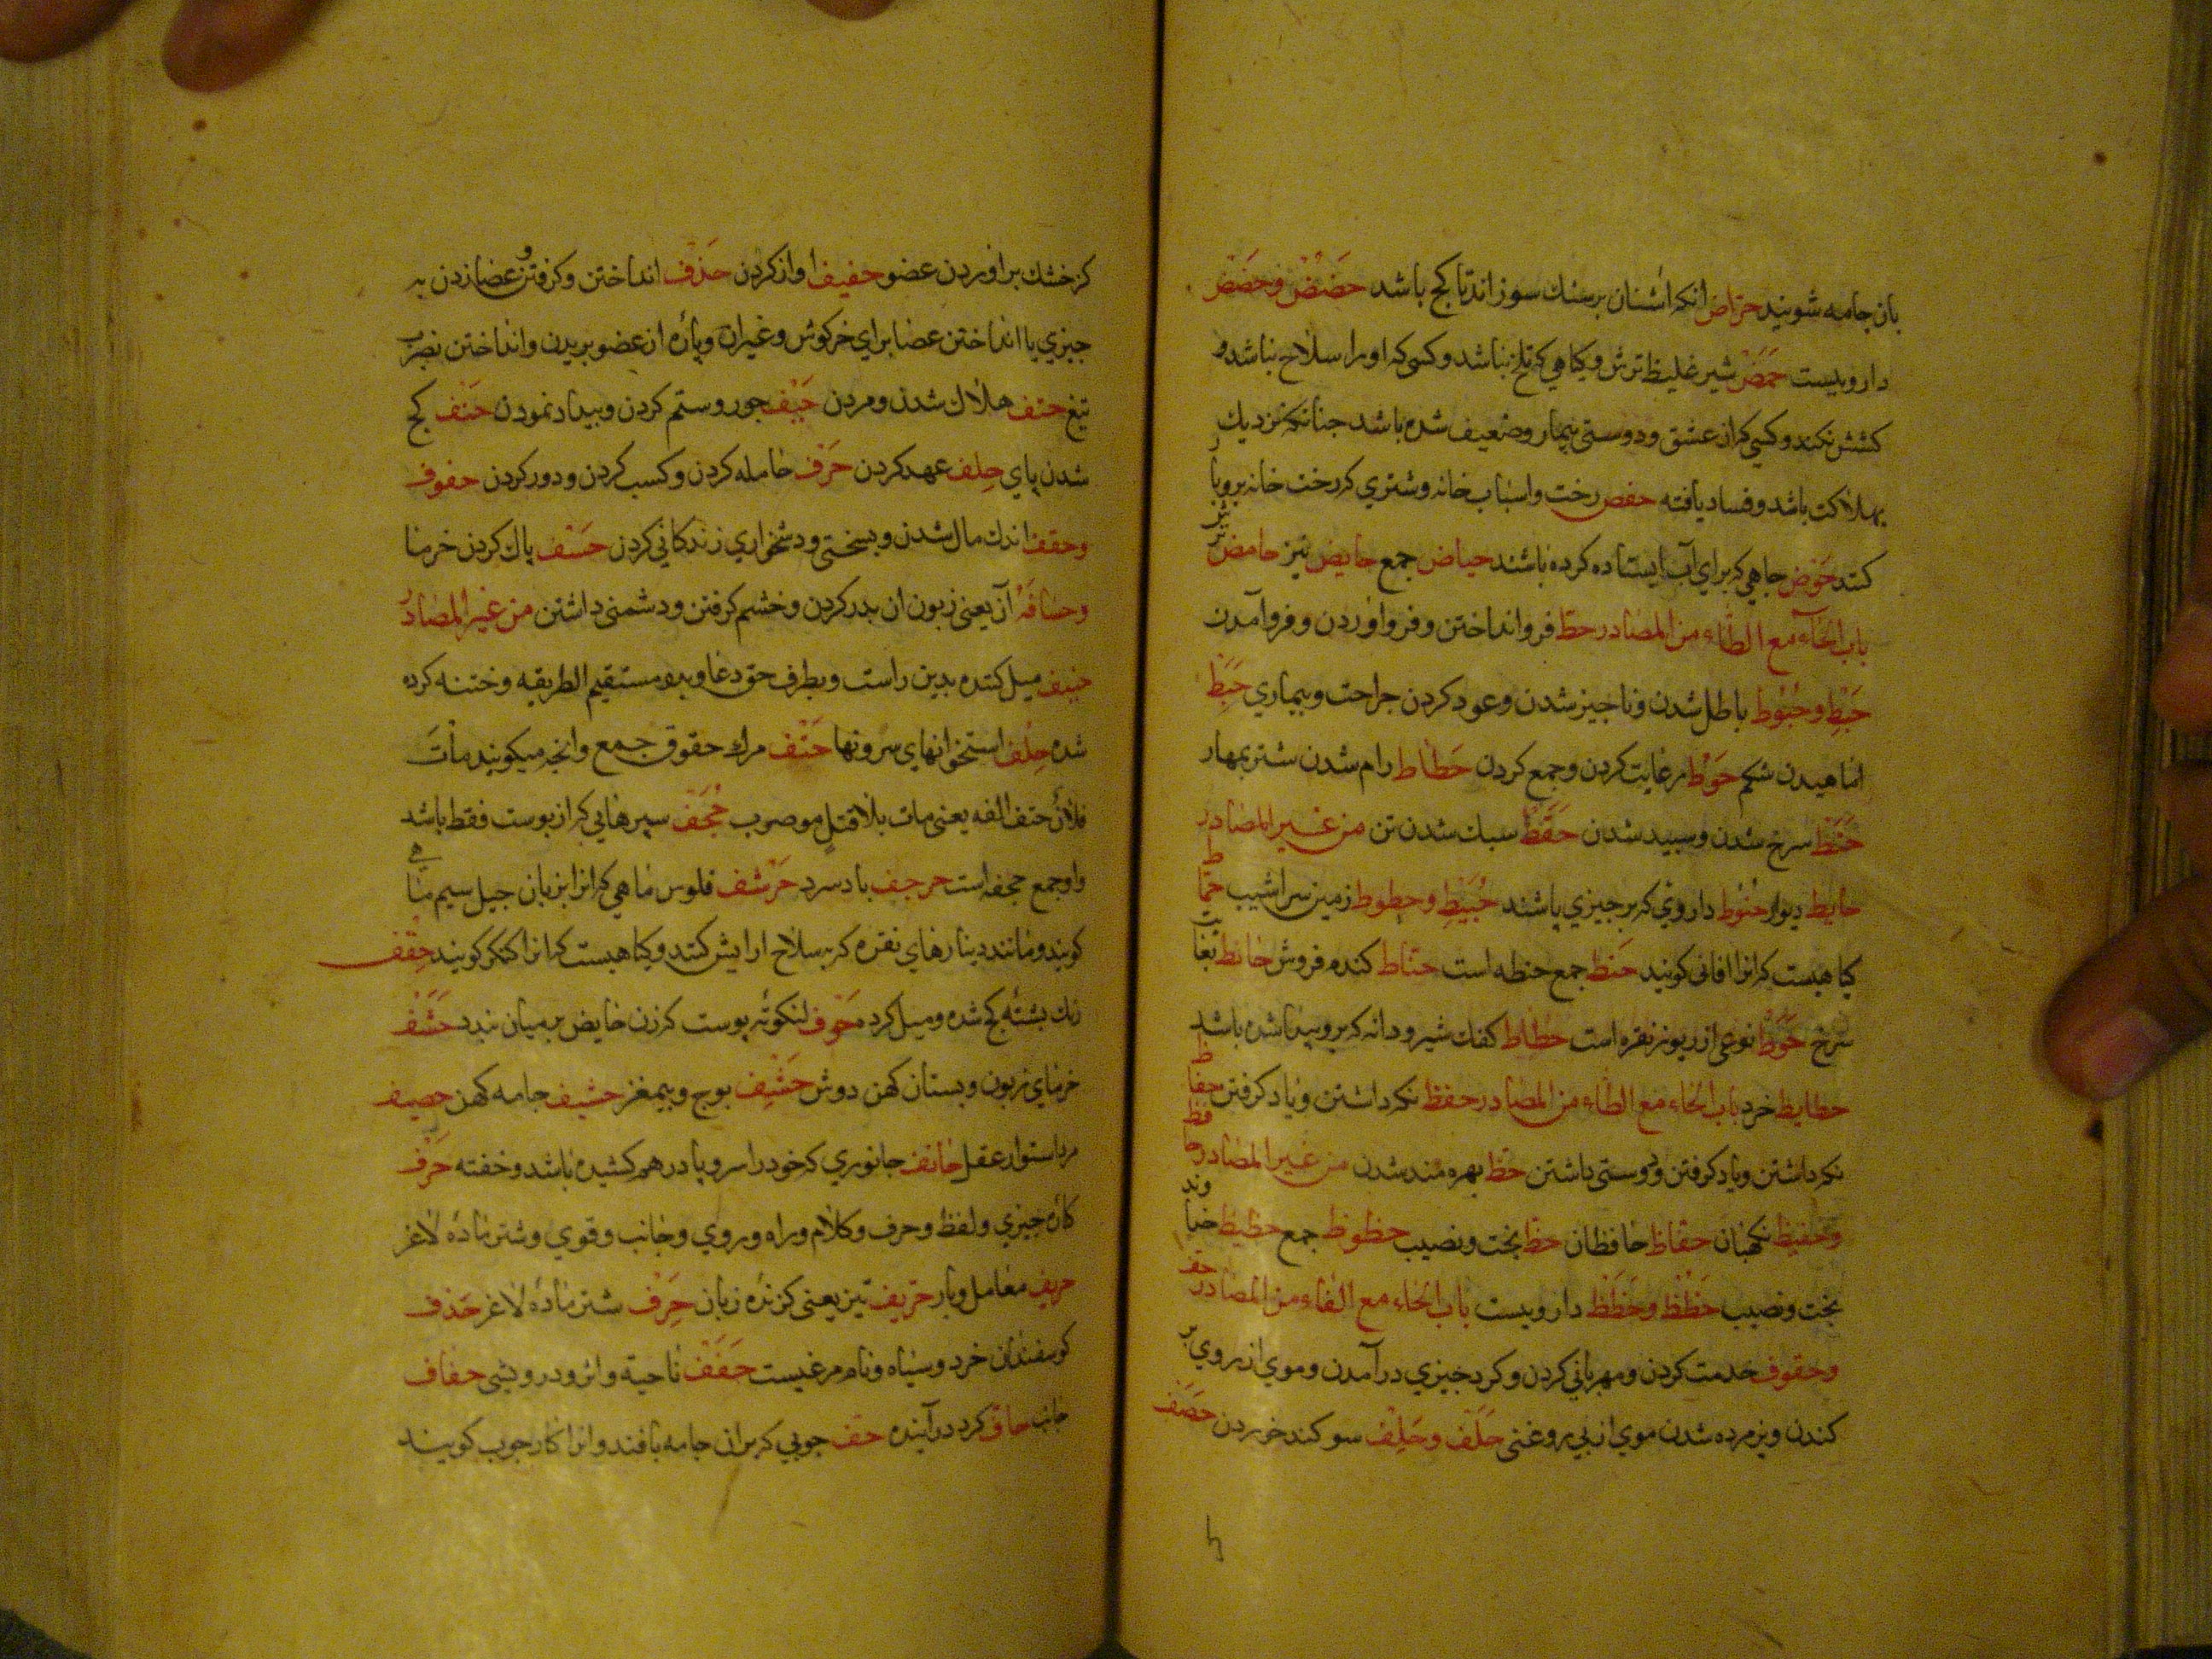 بان جامه شویند حرّاض انکه اشنان برسنك سوزاند تا کج باشد حضض وحضض
داروییست حمض شیر غلیظ ترش وکیاهی که تلخ نباشد وکسی که اورا سلاح نباشد و
کشش نکند وکسی که از عشق ودوستی بیمار وضعیف شده باشد جنانکه نزدیك
بهلاکت باشد وفساد یافته حفص رخت واسباب خانه وشتری که رخت خانه بروبار
کنند حوض جاهی که برای آب ایستاده کرده باشند حیاض جمع حایض نیز حامض ترش
باب الحآء مع الطاء من المصادر حطّ فرو انداختن وفرو اوردن وفرو آمدن
حبط وحبوط باطل شدن وناجیز شدن وعود کردن جراحت وبیماری حبط
اماهیدن شکم حوط رعایت کردن وجمع کردن حطاط رام شدن شتر بمهار
حنط سرخ شدن وسبید شدن حقط سبك شدن تن من غیر المصادر
حایط دیوار حنوط داروئی که بر جیزی پاشند حبیط وحطوط زمین سراشیب حماط
کیاهیست که انرا افانی کویند حنط جمع حنطه است حناط کندم فروش حانط بغایت
سرخ حوط نوعی از زیور نقره است حطاط کفك شیر ودانه که بر روی پیدا شده باشد
حطایط خرد باب الحاء مع الظاء من المصادر حفظ نکه داشتن ویاد کرفتن حفاظ
نکه داشتن ویاد کرفتن ودوستی داشتن حظّ بهره مند شدن من غیر المصادر وحافظ
وحفیظ نکهبان حفّاظ حافظان حظّ بخت ونصیب حظوظ جمع حظیظ خداوند
بخت ونصیب حظظ وحظظ داروییست باب الحاء مع الفاء من المصادر حف
وحفوف خدمت کردن ومهربانی کردن وکرد جیزی در آمدن وموی از روی بر
کندن وپزمرده شدن موی از بی روغنی حلف وحلف سوکند خوردن حصف
کر خشك بر اوردن عضو حفیف اواز کردن حذف انداختن وکرفتن وعصا زدن به
جیزی یا انداختن عصا برای خرکوش وغیر ان وپاره از عضو بریدن وانداختن بضرب
تیغ حتف هلاك شدن ومردن حیف جور وستم کردن وبیداد نمودن حنف کج
شدن پای حلف عهد کردن حرف حامله کردن وکسب کردن ودور کردن حفوف
وحفف اندك مال شدن وبسختی ودشخواری زندکانی کردن حسف پاك کردن خرما
وحسافة از یعنی زبون ان بدر کردن وخشم کرفتن ودشمنی داشتن من غیر المصادر
حنیف میل کننده بدین راست وبطرف حق دعا ومستقیم الطریقه وختنه کرده
شده حلف استخوانهای سرونها حتف مرك حقوق جمع وانجه میکویند مات
فلان حتف انفه یعنی مات بلا قتل وضرب حجف سپرهایی که از پوست فقط باشد
واو جمع حجفه است حرجف باد سرد حرشف فلوس ماهی که انرا بزبان جیل سیم ماهی
کویند ومانند دینارهای نقره که به سلاح ارایش کنند وکیاهیست که انرا کنکر کویند حقف
ریك پشته کج شده ومیل کرده حوف لنکوته پوست که زن حایض بر میان بندد حشف
خرمای زبون وبستان کهن دوش حشیف پوج وبیمغز حشیف جامه کهن حصیف
مرد استوار عقل حانف جانوری که خود را سر وپا درهم کشیده باشد وخفته حرف
کناره جیزی ولفظ وحرف وکلام وراه وروی وجانب وقوی وشتر ماده لاغر
حریف معامل ویار حریف تیز یعنی کزنده زبان حرف شتر ماده لاغر حذف
کوسفندان خرد وسیاه ونام مرغیست حفف ناحیة واثر ودرویشی حفاف
جانب حافّ کرد در آینده حف جوبی که بران جامه بافند وانرا کارجوب کویند